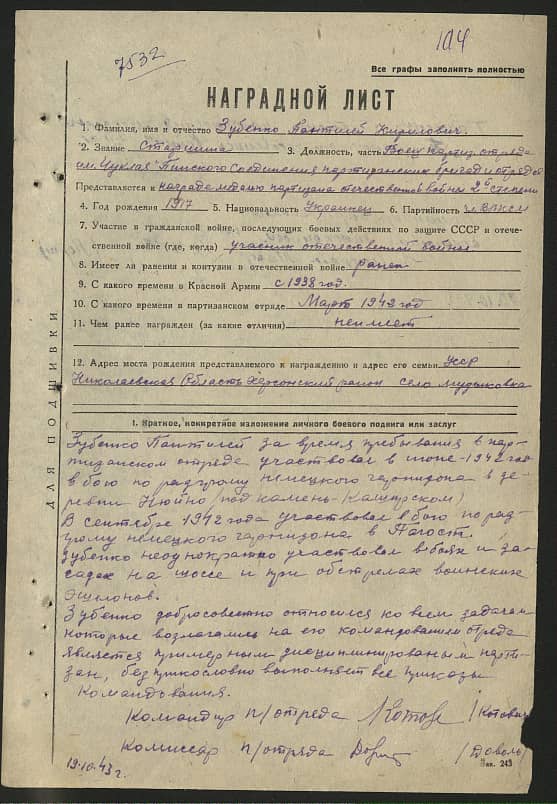 7532
104
Все графы заполнять полностью
НАГРАДНОЙ ЛИСТ
1. Фамилия, имя и отчество Зубенко Пантилей Кирилович.
2. Звание Старшина 3. Должность, часть Боец партиз. отряда
им. Чуклая Пинского Соединения партизанских бригад и отрядов
Представляется к награде медалью партизана отечественной войны 2й степени
4. Год рождения 1917 5. Национальность Украинец 6. Партийность чл ВЛКСМ
7. Участие в гражданской войне, последующих боевых действиях по защите СССР и отече-
ственной войне (где, когда) участник отечественной войны
8. Имеет ли ранения и контузии в отечественной войне ранен
9. С какого времени в Красной Армии с 1938 год.
10. С какого времени в партизанском отряде Март 1942 год
11. Чем ранее награжден (за какие отличия) неимеет
12. Адрес места рождения представляемого к награждению и адрес его семьи УССР
Николаевская Область Херсонский район село Мудьковка
ДЛЯ ПОДШИВКИ
I. Краткое, конкретное изложение личного боевого подвига или заслуг
Зубенко Пантилей за время пребывания в пар-
тизанском отряде участвовал в июне-1942 год
в бою по разгрому немецкого гарнизона в де-
ревни Нюйно (под Камень-Каширском)
В сентябре 1942 года участвовал в бою по раз-
грому немецкого гарнизона в Погост.
Зубенко неоднократно участвовал в боях и за-
садах на шоссе и при обстрелах воинских
эшелонов.
Зубенко добросовестно относился ко всем задачам
которые возлагались на его командованием отряда
является примерным дисциплинированым парти-
зан, бесприкословно выполняет все приказы
Командования.
Командир п/отряда /Котович
Комиссар п/отряда /Доволь
19.10.43 г.
Зак. 243